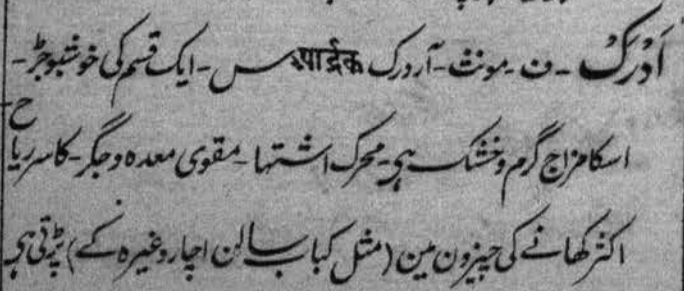 اَدْرَکْ - ف - مونث - آردرک आर्द्रक س - ایک قسم کی خوشبو جڑ -
اسکا مزاج گرم و خشک ہی - محرک اشتہا - مقوی معدہ و جگر - کاسر ریاح
اکثر کھانے کی چیزون مین (مثل کباب سالن اچار وغیرہ کے) پڑتی ہی